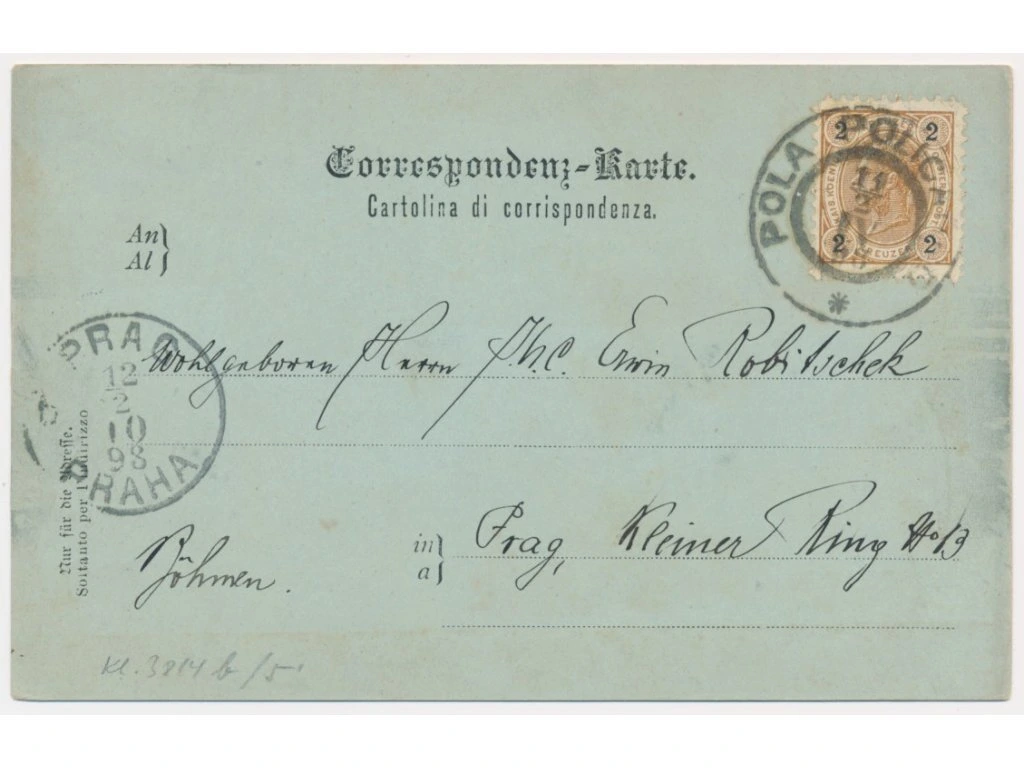 Correspondenz-Karte.
Cartolina di corrispondenza.
An
Al
POLA POLICARPO
11
2
2 2
2 2
KREUZER
PRAG
12
2
10
98
PRAHA
Wohlgeboren Herrn Ph. C. Erwin Robitschek
in
a
Prag, Kleiner Ring No 13
Böhmen.
Nur für die Adresse.
Soltanto per l'indirizzo
Kl. 3814 b /5